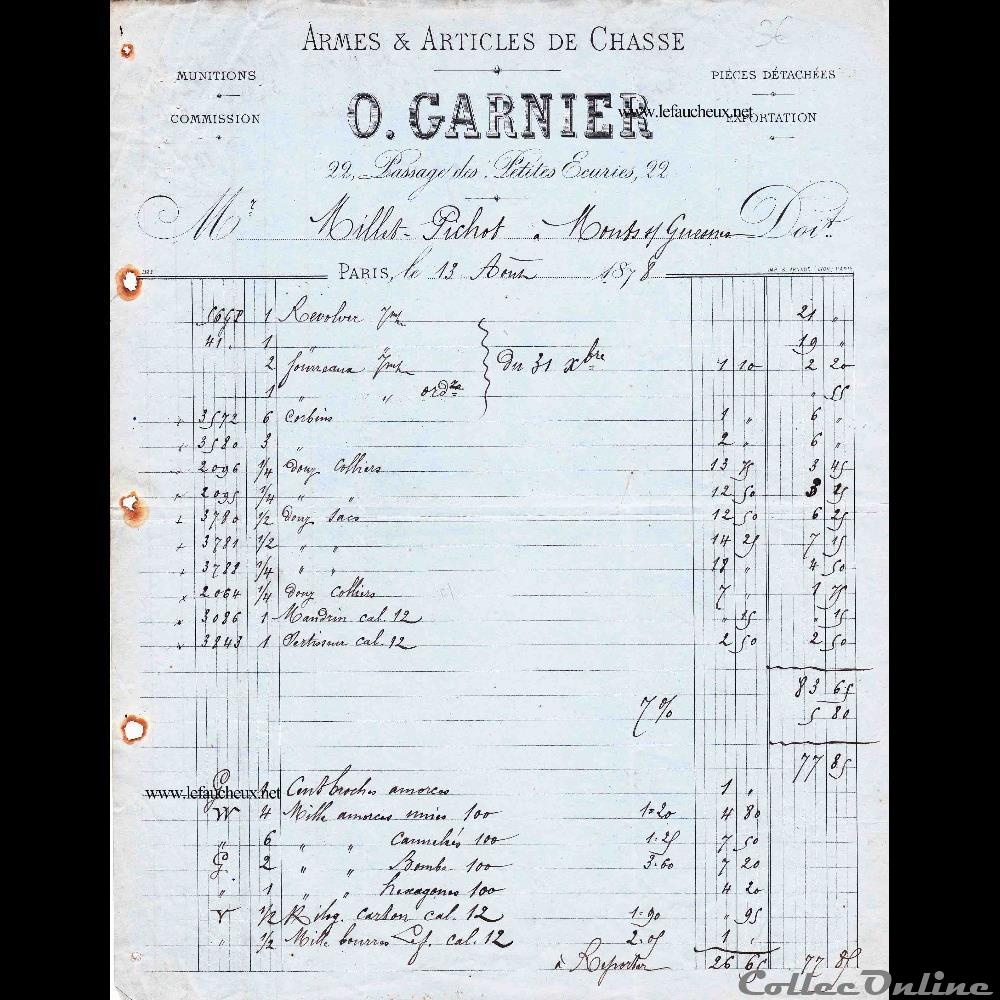 36
ARMES & ARTICLES DE CHASSE
MUNITIONS
PIÈCES DÉTACHÉES
O. GARNIER
www.lefaucheux.net
COMMISSION
EXPORTATION
22, Passage des Petites Ecuries, 22
Mr. Millet-Pichot à Monts s/ Guesnes Doit.
PARIS, le 13 Août 1878
1 Revolver 7m 21 "
41 1 " " 19 "
2 fourreaux 7m du 31 Xbre 1 10 2 20
1 " " ordre " 55
3572 6 Corbins 1 " 6 "
3580 3 " 2 " 6 "
2096 1/4 douz Colliers 13 75 3 45
2095 1/4 " " 12 50 3 25
3780 1/2 douz Sacs 12 50 6 25
3781 1/2 " " 14 25 7 15
3788 1/4 " " 18 " 4 50
2064 1/4 douz Colliers 7 " 1 75
3086 1 Mandrin cal. 12 " 15 " 15
3843 1 Sertisseur cal. 12 2 50 2 50
83 65
7 % 5 80
77 85
G Cent broches amorces 1 "
www.lefaucheux.net
4 Mille amorces unies 100 1=20 4 80
" 6 " " Cannelés 100 1=25 7 50
G 2 " " Bombe 100 3=60 7 20
" 1 " " hexagones 100 4 20
V 1/2 Kilog. carton cal. 12 1=90 " 95
" 1/2 Mille bourres Lef. cal. 12 2=05 1
à Reporter 26 65 77 85
CollecOnline